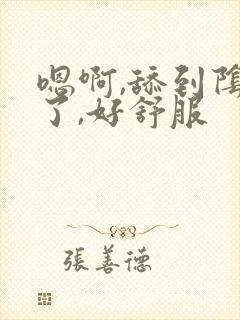 嗯啊,舔到陰
了,好舒服
張善德